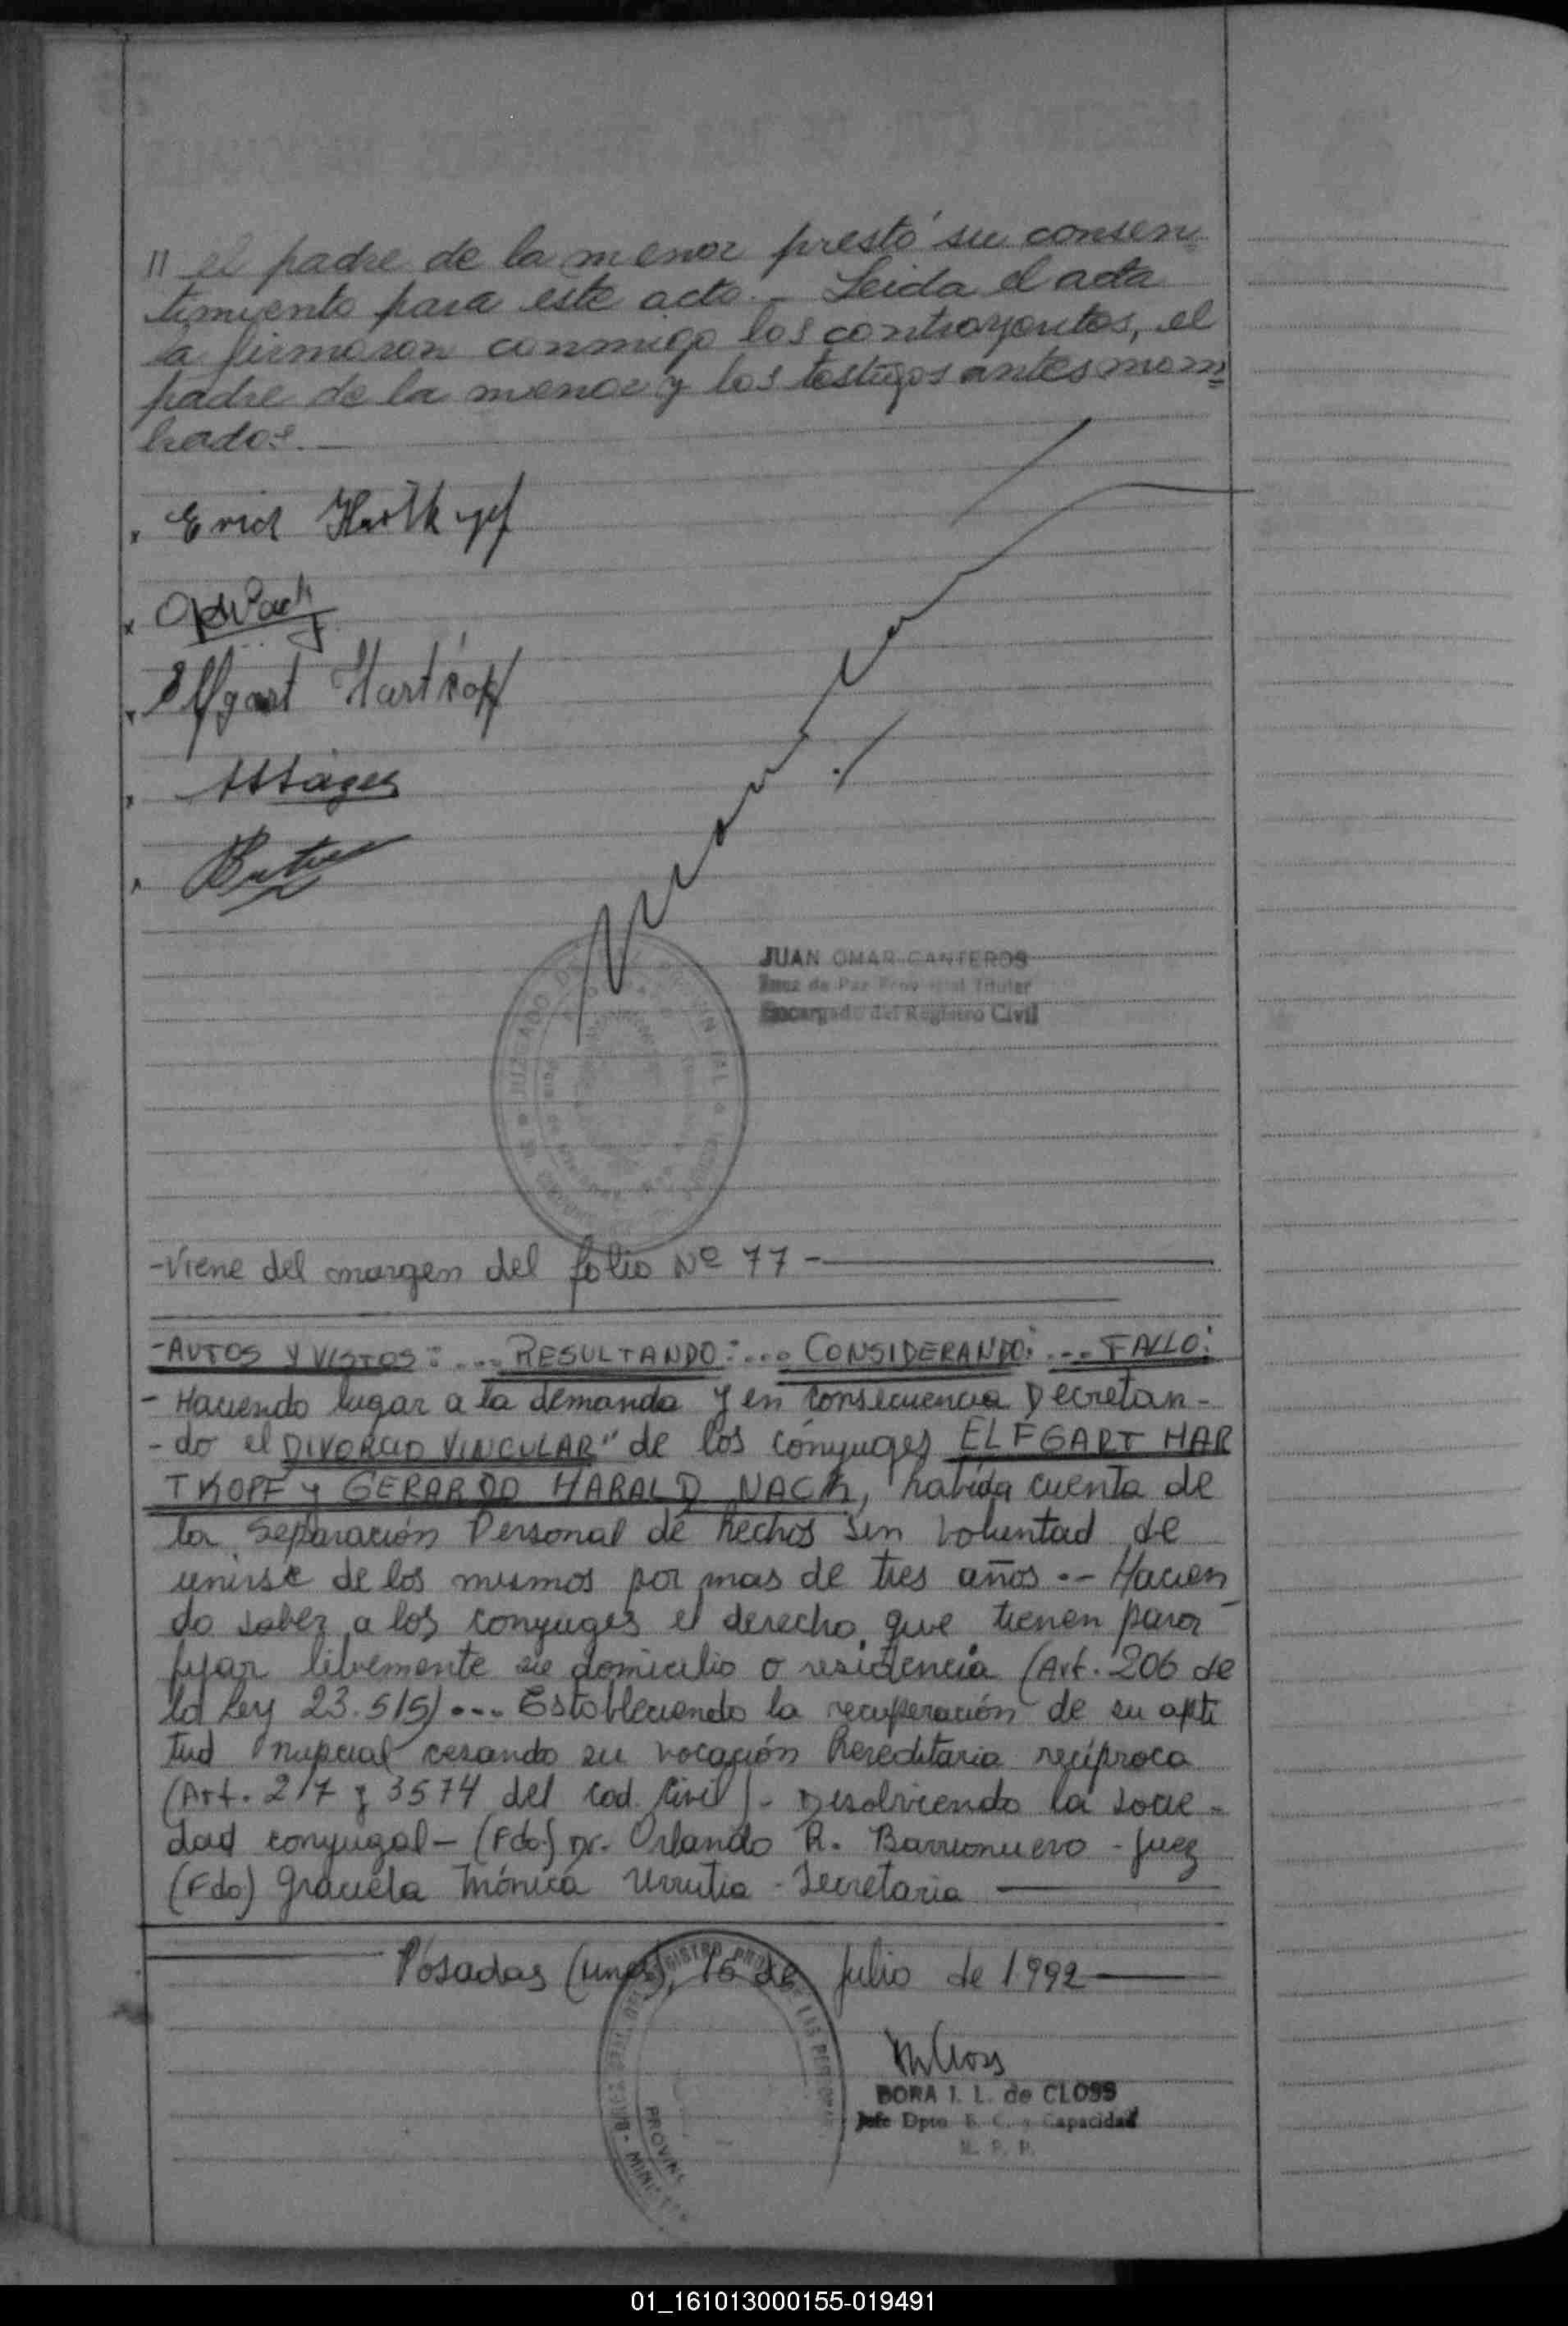 11 el padre de la menor prestó su consen=
timiento para este acto.- Leida el acta
la firmaron conmigo los contrayentes, el
padre de la menor y los testigos antes mom=
brados.—
x Erich Hartkopf
x
x Elfgart Hartkopf
x
x
JUAN OMAR CANTEROS
Juez de Paz Titular
Encargado del Registro Civil
-Viene del margen del folio Nº 77-
-AUTOS Y VISTOS:... RESULTANDO:... CONSIDERANDO:... FALLO:
- Haciendo lugar a la demanda y en consecuencia Decretan-
- do el DIVORCIO VINCULAR" de los cónyuges ELFGART HAR
TKOPF y GERARDO HARALD NACK, habida cuenta de
la Separación Personal de hechos sin voluntad de
unirse de los mismos por mas de tres años.- Hacien
do saber a los conyuges el derecho que tienen para
fijar libremente su domicilio o residencia (Art. 206 de
la Ley 23.515)... Estableciendo la recuperación de su apti
tud nupcial cesando su vocación hereditaria recíproca
(Art. 217 y 3574 del Cod. Civil)- Disolviendo la socie-
dad conyugal- (Fdo) Dr. Orlando R. Barrionuevo - Juez
(Fdo) Graciela Mónica Urrutia - Secretaria
Posadas (Mnes), 16 de Julio de 1992
DORA I. L. de CLOSS
Jefe Dpto. E. C. y Capacidad
R. P. P.
01_161013000155-019491